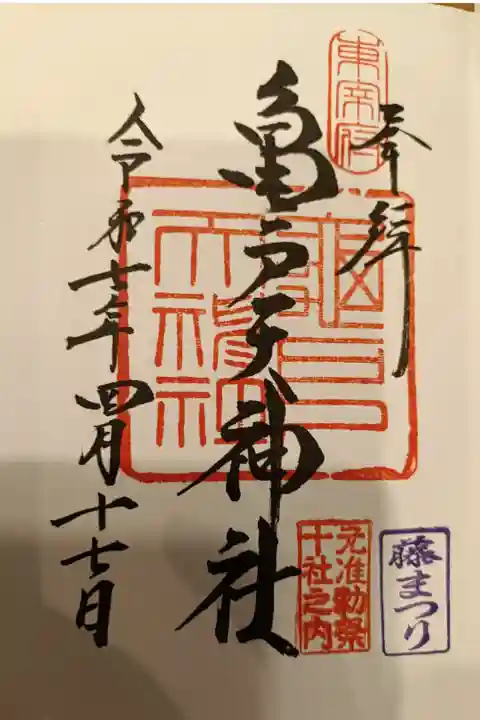 東宰府
奉拝
亀戸天神社
龜戸
天神社
令和年四月十七日
元准勅祭
十社之内
藤まつり